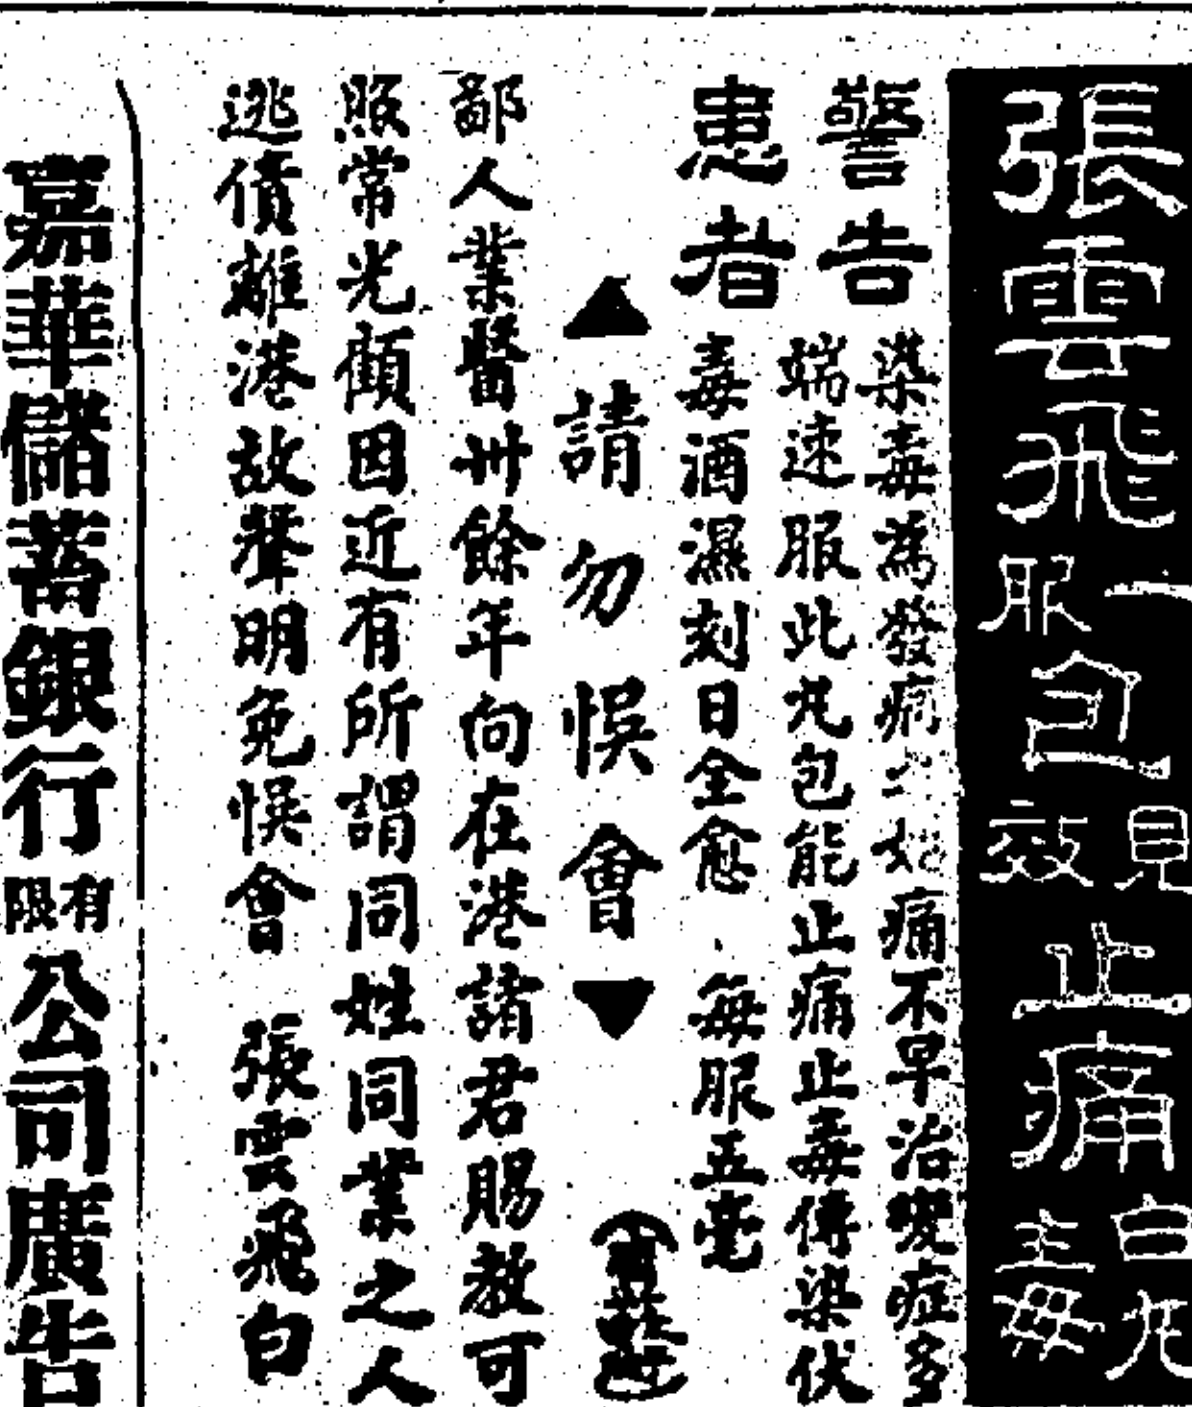 張雲飛
一服
包
見效
止痛
警告
患者
染毒為發病
痛不早治變症多
端速服此丸包能止痛止毒傳染伏
毒酒濕刻日全愈 每服五毫
▲請勿悞會▼
鄙人業醫卅餘年向在港諸君賜教可
照常光顧因近有所謂同姓同業之人
逃債離港故聲明免悞會 張雲飛白
嘉華儲蓄銀行有限公司廣告